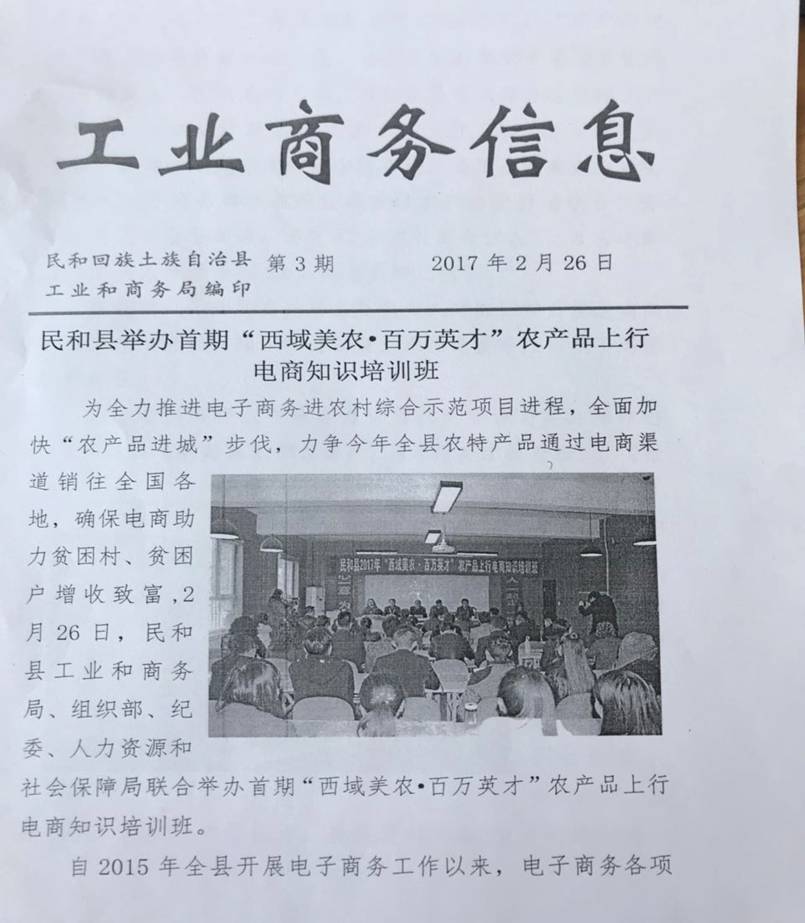 工业商务信息
民和回族土族自治县
工业和商务局编印
第3期
2017年2月26日
民和县举办首期“西域美农•百万英才”农产品上行
电商知识培训班
为全力推进电子商务进农村综合示范项目进程，全面加
快“农产品进城”步伐，力争今年全县农特产品通过电商渠
道销往全国各
地，确保电商助
力贫困村、贫困
户增收致富,2
月26日，民和
县工业和商务
局、组织部、纪
委、人力资源和
民和县2017年“西域美农·百万英才”农产品上行电商知识培训班
社会保障局联合举办首期“西域美农•百万英才”农产品上行
电商知识培训班。
自2015年全县开展电子商务工作以来，电子商务各项